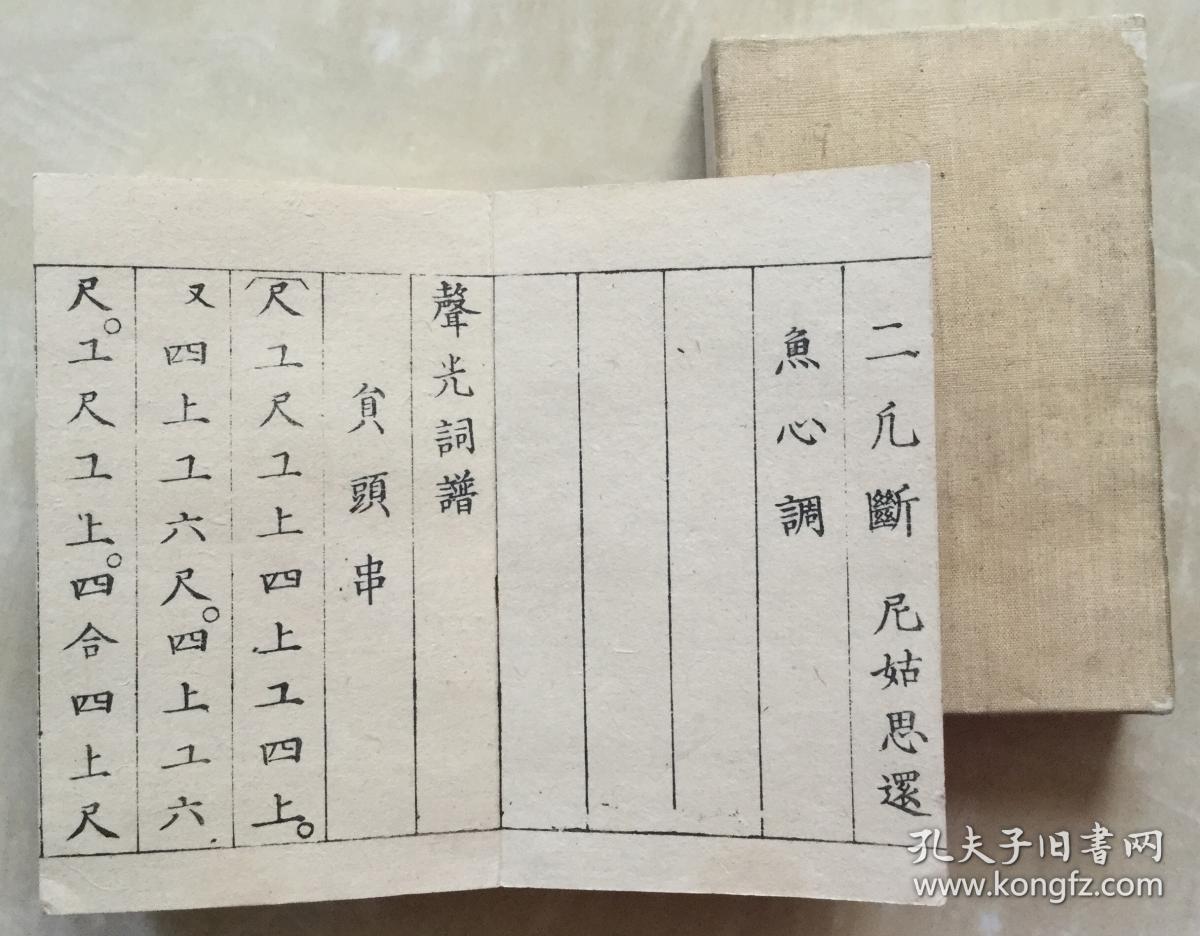 二凡斷 尼姑思還
魚心調
聲光詞譜
貟頭串
尺工尺工上四上工四上。
又四上工六尺。四上工六
尺。工尺工上。四合四上尺
孔夫子旧书网
www.kongfz.com